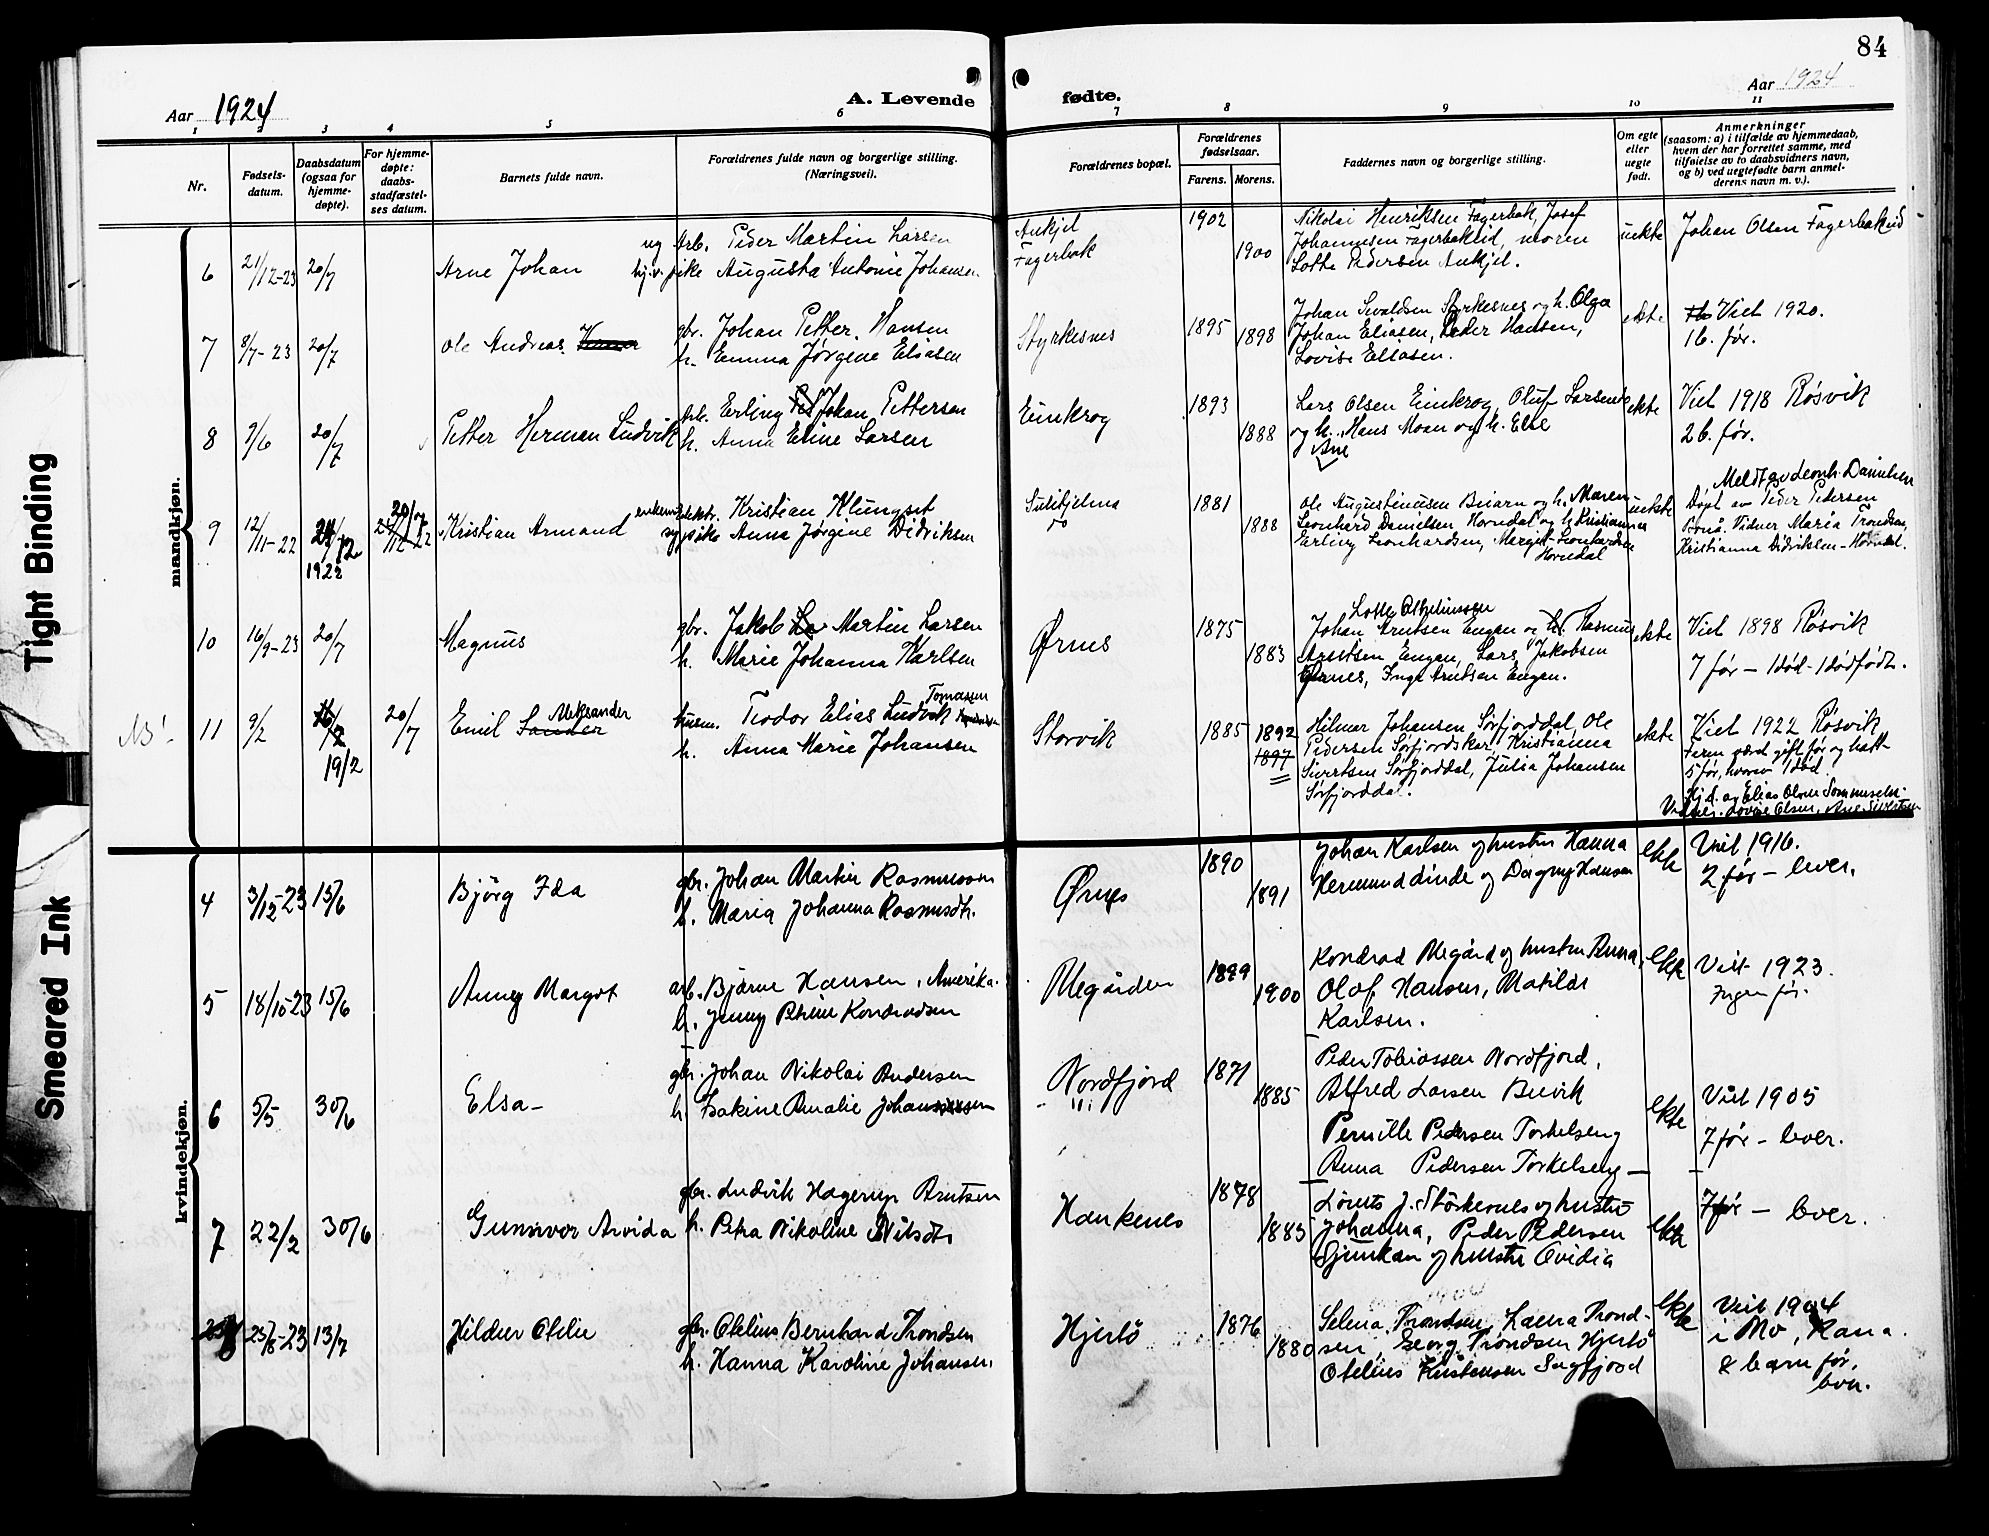 84
Aar 1924
A. Levende
fødte.
Aar 1924
1 2 3 4 5 6 7 8 9 10 11
Nr.
Fødsels-
datum.
Daabsdatum
(ogsaa for
hjemme-
døpte).
For hjemme-
døpte:
daabs-
stadfæstel-
ses datum.
Barnets fulde navn.
Forældrenes fulde navn og borgerlige stilling.
(Næringsvei).
Forældrenes bopæl.
Forældrenes
fødselsaar.
Farens. Morens.
Faddernes navn og borgerlige stilling.
Om egte
eller
uegte
født.
Anmerkninger
(saasom: a) i tilfælde av hjemmedaab,
hvem der har forrettet samme, med
tilføielse av to daabsvidners navn,
og b) ved uegtefødte barn anmel-
derens navn m. v.).
mandkjøn.
6 21/12-23 20/7 Arne Johan
ug Arb. Peder Martin Larsen
hj.v. pike Augusta Antonie Johansen
Ankjel
Fagerbak
1902 1900
Nikolai Henriksen Fagerbak, Josef
Johannesen Fagerbaklid, moren
Lotte Pedersen Ankjel.
uekte
Johan Olsen Fagerbaklid
7 8/7-23 20/7 Ole Andreas
gbr. Johan Petter Hansen
h. Emma Jørgine Eliasen
Styrkesnes
1895 1898
Johan Sivaldsen Styrkesnes og h. Olga
Johan Eliasen, Peder Hansen,
Lovise Eliasen.
ekte
Viet 1920.
1 b. før.
8 9/6 20/7 Petter Herman Ludvik
Arb. Erling Johan Pettersen
h. Anna Eline Larsen
Einkrog
1893 1888
Lars Olsen Einkrog, Oluf Larsen
og h. Hans Moan og h. Else
Ane
ekte
Viet 1918 Røsvik
2 b. før.
9 12/11-22 24/12 1922 20/7 Kristian Armand
enkem. elektr. Kristian Klungset
ug pike Anna Jørgine Didriksen
Sulitjelma
1881 1888
Ole Augustinusen Beiarn og h. Maren
Leonhard Danielsen Horndal og h. Kristianna
Erling Leonhardsen, Margit Leonhardsen
Horndal
uekte
Meldt av Leonh. Danielsen
Døpt av Peder Pedersen
Bonå. Vidner Maria Trondsen,
Kristianna Didriksen - Horndal.
10 16/9-23 20/7 Magnus
gbr. Jakob Martin Larsen
h. Marie Johanna Karlsen
Ørnes
1875 1883
Lotte Othelinssen
Johan Arntsen Engan og h. Rasmus
Arntsen Engan, Lars Jakobsen
Ørnes, Inga Arntsen Engen.
ekte
Viet 1898 Røsvik
7 før - 1 død - 1 dødfødt.
NB! 11 9/2 19/2 20/7 Emil Sander Aleksander
husm. Teodor Elias Ludvik Tomassen
h. Anna Marie Johansen
Storvik
1885 1892
1897
Hilmar Johansen Sørfjorddal, Ole
Pedersen Sørfjordskar, Kristianna
Sivertsen Sørfjorddal, Julia Johansen
Sørfjorddal.
ekte
Viet 1922 Røsvik
Faren været gift før og hatt
5 før, hvorav 1 død
Hj.d. av Elias Olsen Sommerset.
Vidner: Lovise Olsen, Ane Sivertsen
kvindekjøn.
4 3/12-23 15/6 Bjørg Ida
gbr. Johan Martin Rasmussen
h. Maria Johanna Rasmusdtr.
Ørnes
1890 1891
Johan Karlsen og hustru Hanna
Hermund Linde og Dagny Hansen
ekte
Viet 1916.
2 før - lever.
5 18/10-23 15/6 Anny Margot
arb. Bjarne Hansen, Amerika.
h. Jenny Petrine Kondradsen
Megården
1899 1900
Kondrad Megård og hustru Anna,
Olaf Hansen, Matilde
Karlsen.
ekte
Viet 1923.
Ingen før.
6 5/5 30/6 Elsa -
gbr. Johan Nikolai Andersen
h. Isakine Amalie Johansen
Nordfjord
1871 1885
Peder Tobiassen Nordfjord,
Alfred Larsen Buvik
Pernille Pedersen Torkelseng
Anna Pedersen Torkelseng -
ekte
Viet 1905
7 før - lever.
7 22/2 30/6 Gunnvor Arvida
gbr. Ludvik Hagerup Arntsen
h. Petra Nikoline Nilsdtr.
Hankenes
1878 1885
Lorents J. Storkenes og hustru
Johanna, Peder Pedersen
Sjunkan og hustru Ovidia
ekte
7 før - lever.
8 25/8-23 13/7 Hildur Otelie
gbr. Otelius Bernhard Trondsen
h. Hanna Karoline Johansen.
Hjertø
1876 1880
Selena Trondsen, Laura Trond-
sen, Georg Trondsen Hjertø
Otelius Kristensen Sagfjord
ekte
Viet 1904
i Mo, Rana.
8 barn før,
lever.
Tight Binding
Smeared Ink